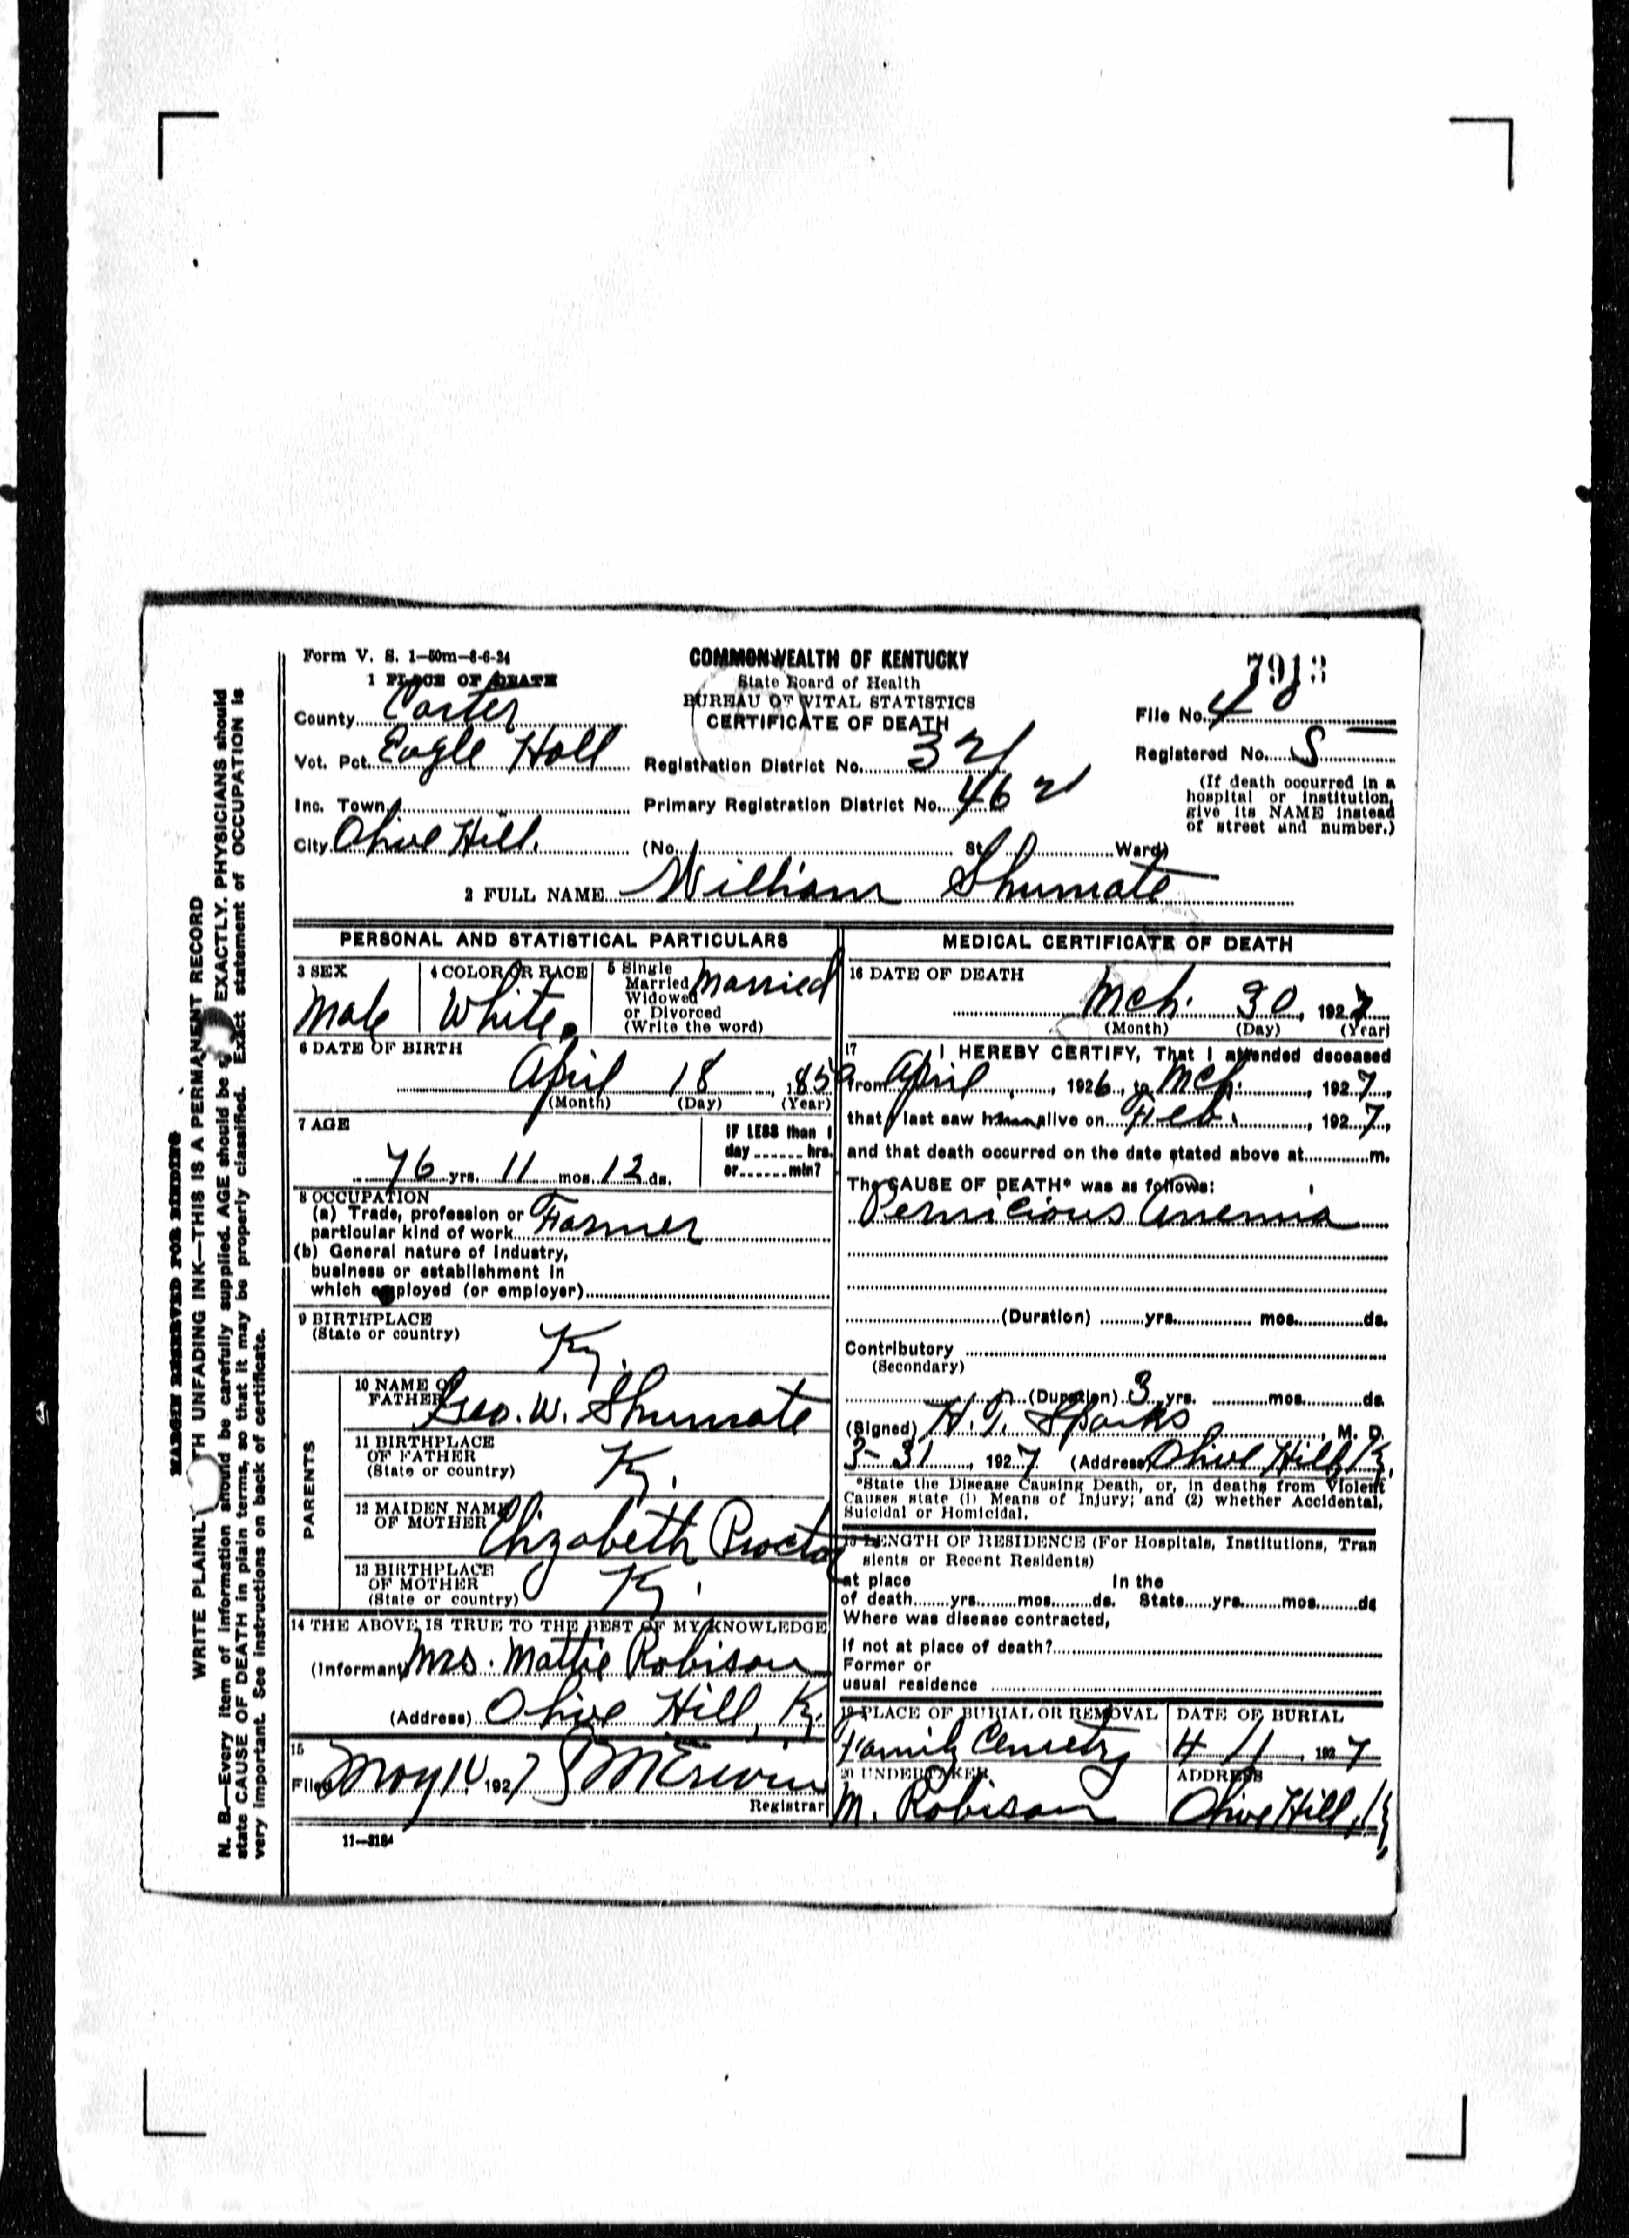 Form V. S. 1—50m—8-6-24
COMMONWEALTH OF KENTUCKY
State Board of Health
BUREAU OF VITAL STATISTICS
CERTIFICATE OF DEATH
7913
1 PLACE OF DEATH
County Carter
File No. 40
Vot. Pct. Eagle Hall
Registration District No. 321
Registered No. S
Inc. Town
Primary Registration District No. 4621
(If death occurred in a
hospital or institution,
give its NAME instead
of street and number.)
City Olive Hill.
(No. St. Ward)
2 FULL NAME William Shumate
PERSONAL AND STATISTICAL PARTICULARS
3 SEX
Male
4 COLOR OR RACE
White
5 Single
Married
Widowed
or Divorced
(Write the word)
Married
6 DATE OF BIRTH
April 18, 185
(Month) (Day) (Year)
7 AGE
76 yrs. 11 mos. 12 ds.
IF LESS than 1
day hrs.
or min?
8 OCCUPATION
(a) Trade, profession or
particular kind of work Farmer
(b) General nature of industry,
business or establishment in
which employed (or employer)
9 BIRTHPLACE
(State or country)
Ky.
PARENTS
10 NAME OF
FATHER Geo. W. Shumate
11 BIRTHPLACE
OF FATHER
(State or country)
Ky.
12 MAIDEN NAME
OF MOTHER Elizabeth Proctor
13 BIRTHPLACE
OF MOTHER
(State or country)
Ky.
14 THE ABOVE IS TRUE TO THE BEST OF MY KNOWLEDGE
(Informant) Mrs. Mattie Robison
(Address) Olive Hill, Ky.
15
Filed May 10 1927 Erwin
Registrar
11—3184
MEDICAL CERTIFICATE OF DEATH
16 DATE OF DEATH
Mch. 30, 1927
(Month) (Day) (Year)
17 I HEREBY CERTIFY, That I attended deceased
from April, 1926, to Mch., 1927,
that I last saw him alive on Feb., 1927,
and that death occurred on the date stated above at m.
The CAUSE OF DEATH* was as follows:
Pernicious Anemia
(Duration) yrs. mos. ds.
Contributory
(Secondary)
(Duration) 3 yrs. mos. ds.
(Signed) H. T. Sparks, M. D.
3-31, 1927 (Address) Olive Hill, Ky.
*State the Disease Causing Death, or, in deaths from Violent
Causes state (1) Means of Injury; and (2) whether Accidental,
Suicidal or Homicidal.
18 LENGTH OF RESIDENCE (For Hospitals, Institutions, Tran
sients or Recent Residents)
at place In the
of death yrs. mos. ds. State yrs. mos. ds
Where was disease contracted,
If not at place of death?
Former or
usual residence
19 PLACE OF BURIAL OR REMOVAL
Family Cemetry
DATE OF BURIAL
4 1, 1927
20 UNDERTAKER
M. Robison
ADDRESS
Olive Hill, Ky
MARGIN RESERVED FOR BINDING
WRITE PLAINLY WITH UNFADING INK—THIS IS A PERMANENT RECORD
N. B.—Every item of information should be carefully supplied. AGE should be EXACTLY. PHYSICIANS should
state CAUSE OF DEATH in plain terms, so that it may be properly classified. Exact statement of OCCUPATION is
very important. See instructions on back of certificate.